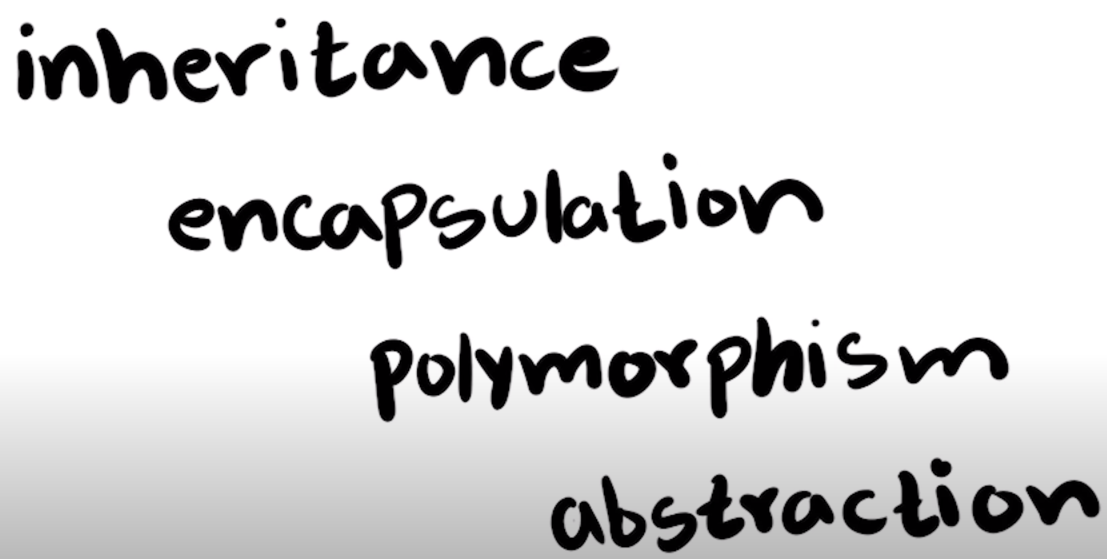 inheritance
encapsulation
polymorphism
abstraction